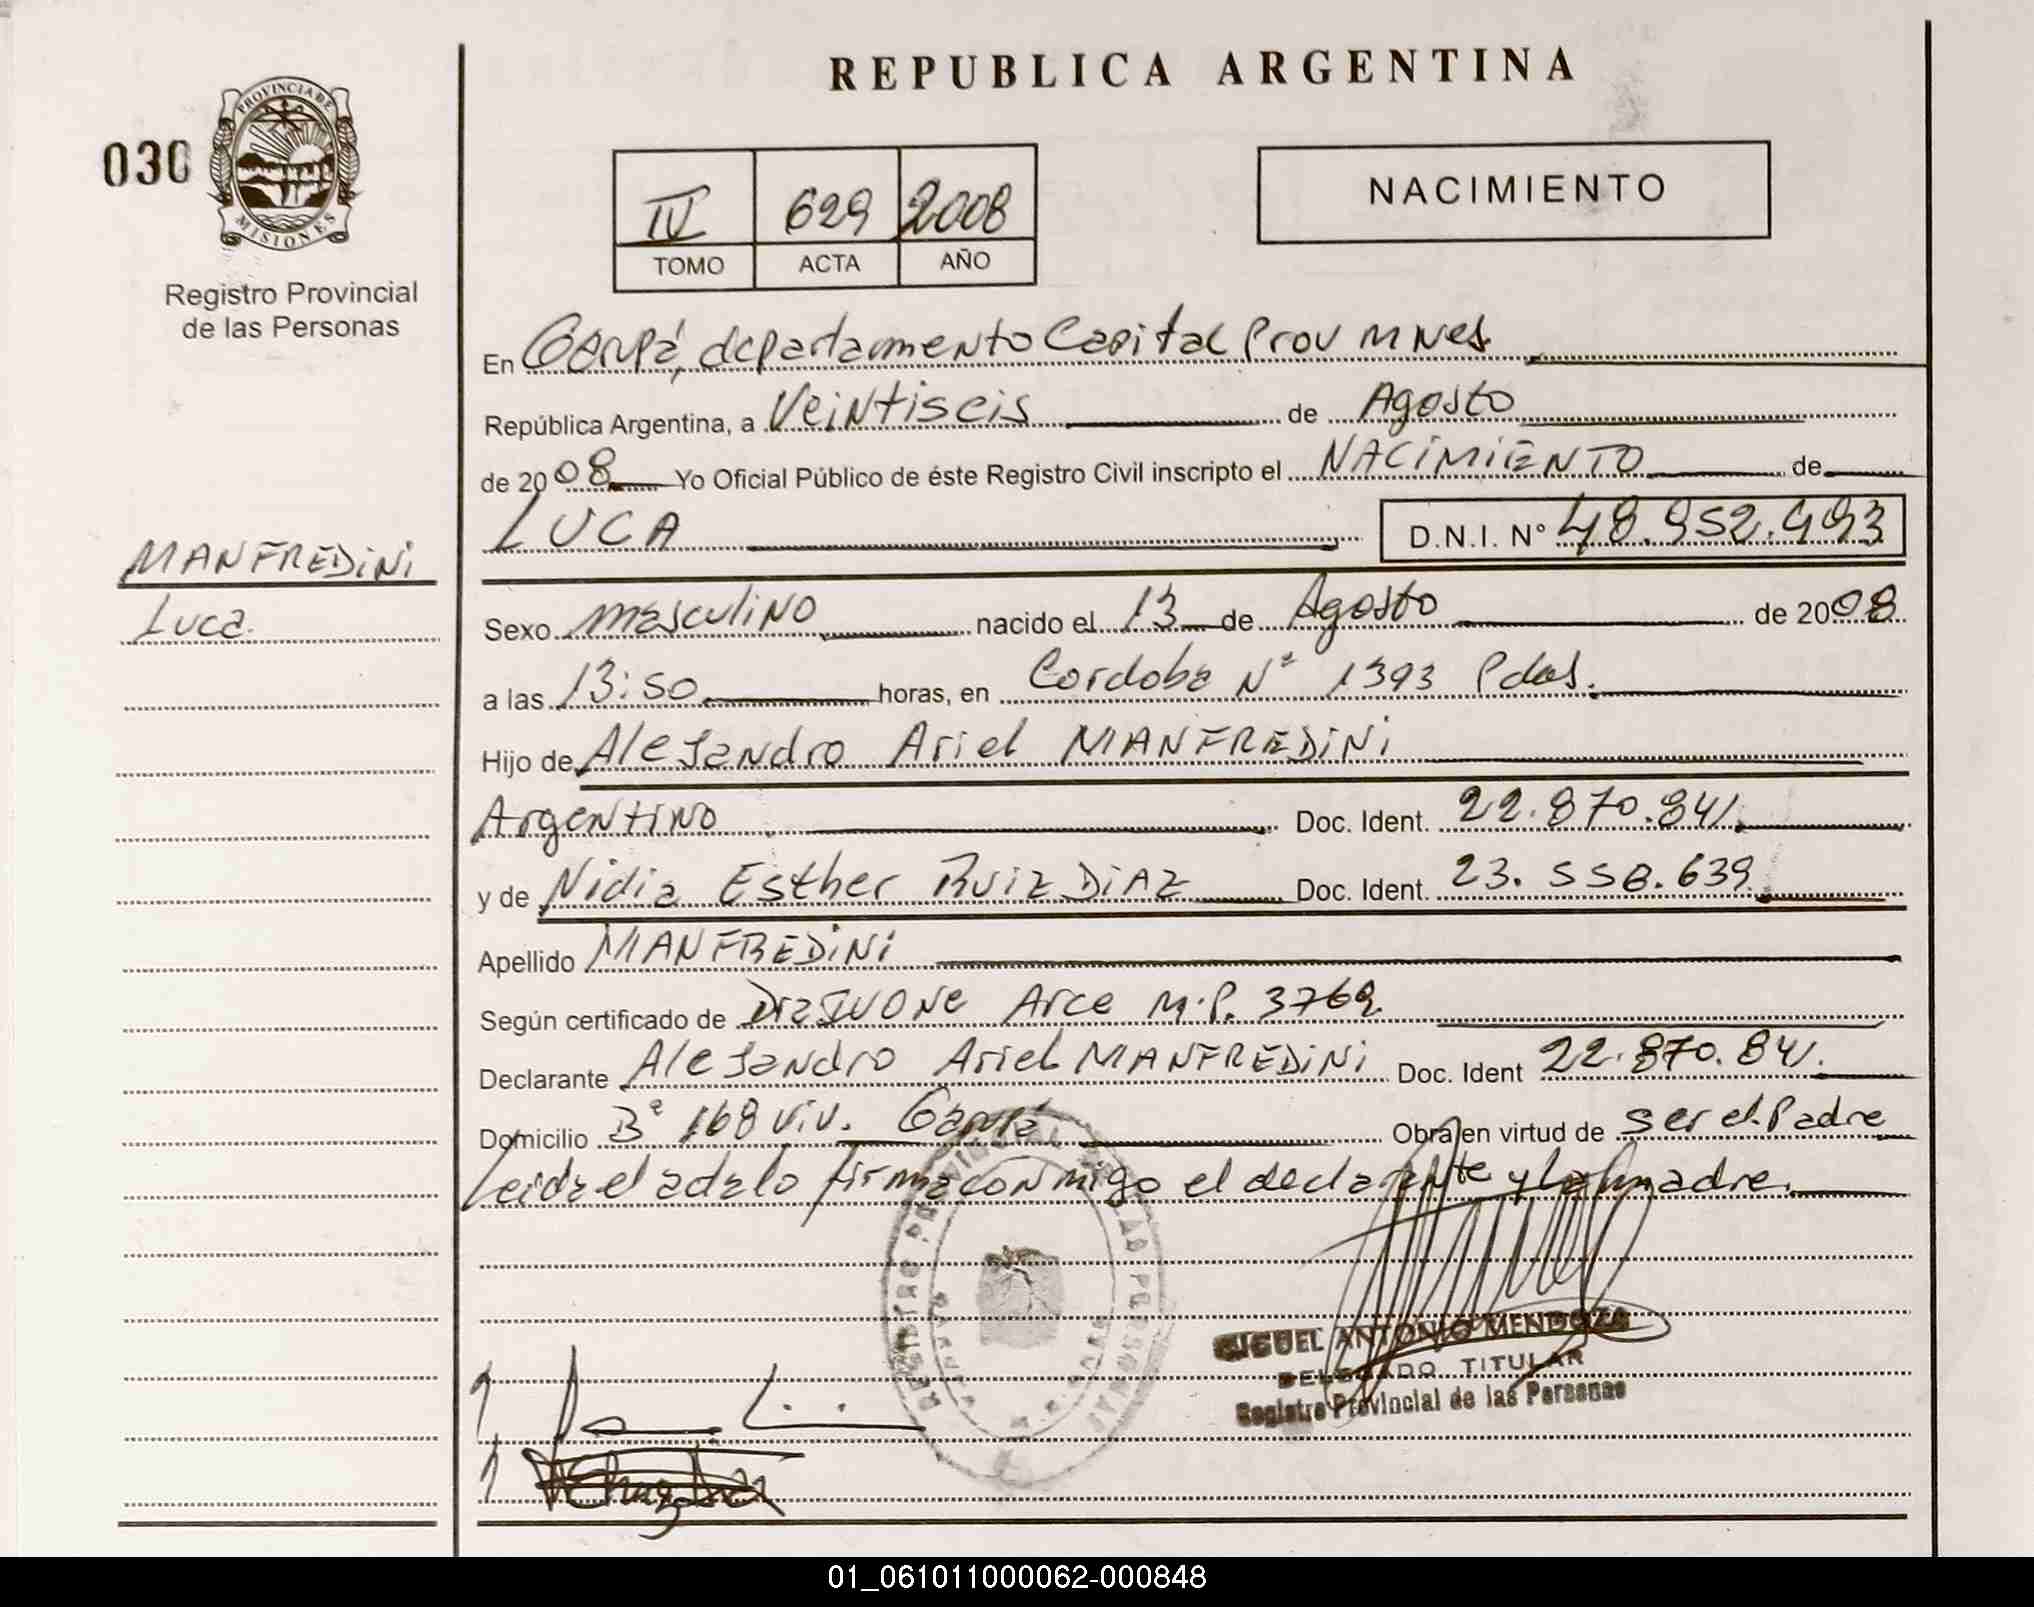 REPUBLICA ARGENTINA
030
PROVINCIA DE
MISIONES
Registro Provincial
de las Personas
IV 629 2008
TOMO ACTA AÑO
NACIMIENTO
En Garupá, departamento Capital Prov Mnes
República Argentina, a Veintiseis de Agosto
de 2008 Yo Oficial Público de éste Registro Civil inscripto el NACIMIENTO de
LUCA D.N.I. Nº 48.952.493
MANFREDINI
Luca.
Sexo masculino nacido el 13 de Agosto de 2008
a las 13:50 horas, en Cordoba Nº 1393 Pdas.
Hijo de Alejandro Ariel MANFREDINI
Argentino Doc. Ident. 22.870.841.
y de Nidia Esther RUIZ DIAZ Doc. Ident. 23.558.639
Apellido MANFREDINI
Según certificado de Arce M.P. 3762
Declarante Alejandro Ariel MANFREDINI Doc. Ident 22.870.841.
Domicilio Bº 168 Viv. Garupá Obra en virtud de ser el Padre
Leida el acta lo firma conmigo el declarante y la madre.
REGISTRO PROVINCIAL DE LAS PERSONAS
MIGUEL ANTONIO MENDOZA
DELEGADO TITULAR
Registro Provincial de las Personas
01_061011000062-000848